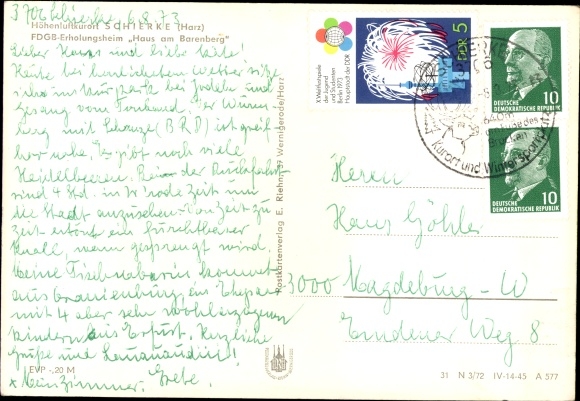 3702 Schierke 6.8.73
Höhenluftkurort SCHIERKE (Harz)
FDGB-Erholungsheim „Haus am Barenberg"
Lieber Hans und liebe Leute!
Heute bei herrlichstem Wetter sitze
ich im Kurpark bei Jodeln und
Gesang vom Torhaus der Wurm
berg mit Schanze (BRD) ist greif
bar nahe. Es gibt noch viele
Heidelbeeren. Bei der Rückfahrt
sind 4 Std. in W'rode Zeit um
die Stadt anzusehen. Von Zeit zu
Zeit ertönt ein furchtbarer
Knall, wenn gesprengt wird.
Meine Tischnabarin kommt
aus Oranienburg, ein Ehepaar
mit 4 aber sehr wohlerzogenen
Kindern aus Erfurt. Herzliche
Grüße und
EVP -,20 M
x Mein Zimmer. Grete.
Postkartenverlag E. Riehn, 37 Wernigerode/Harz
X. Weltfestspiele
der Jugend
und Studenten
Berlin 1973
Hauptstadt der DDR
DDR 5
10
DEUTSCHE
DEMOKRATISCHE REPUBLIK
10
DEUTSCHE
DEMOKRATISCHE REPUBLIK
SCHIERKE
640m
am Fuße des
Brocken
Kurort und Wintersportplatz
Herrn
Hans Göhler
3000 Magdeburg - W
Emdener Weg 8
31 N 3/72 IV-14-45 A 577